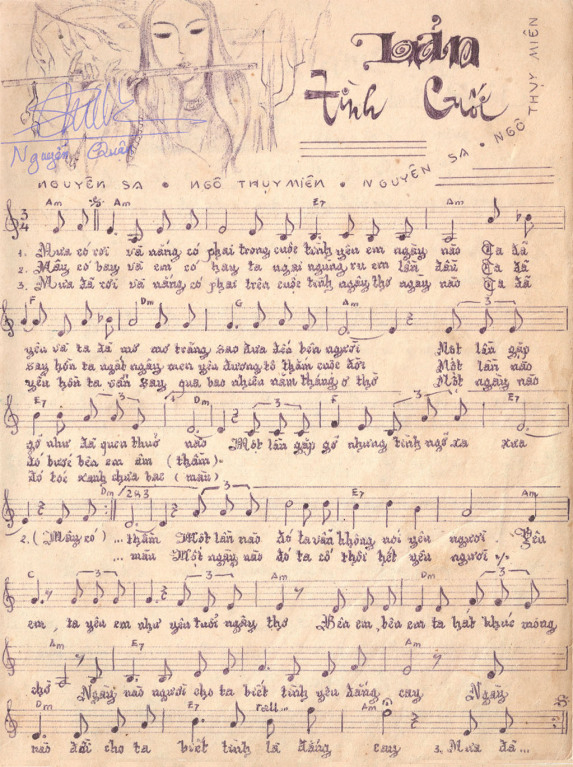 Bản
Tình Cuối
Nguyễn Quân
NGUYÊN SA • NGÔ THỤY MIÊN • NGUYÊN SA • NGÔ THỤY MIÊN
Am Am E7 Am
3
4
1. Mưa có rơi và nắng có phai trong cuộc tình yêu em ngày nào Ta đã
2. Mây có bay và em có hay ta ngại ngùng ru em lần đầu Ta đã
3. Mưa đã rơi và nắng có phai trên cuộc tình ngây thơ ngày nào Ta đã
F Dm G Am 3
yêu và ta đã mơ mơ trăng sao đưa đến bên người Một lần gặp
say hồn ta ngất ngây men yêu đương tô thắm cuộc đời Một lần nào
yêu hồn ta vẫn say qua bao nhiêu năm tháng ơ thờ Một ngày nào
E7 3 Dm 3 F 3 E7
gỡ như đã quen thuở nào Một lần gặp gỡ nhưng tình ngỡ xa xưa
đó bước bên em êm (thắm)-
đó tóc xanh chưa bạc (màu)
Dm 2&3 3 E7 Am
2. (Mây có) ... thắm Một lần nào đó ta vẫn không nói yêu người. Yêu
... màu Một ngày nào đó ta có thôi hết yêu người
C 3 3 Am Dm 3
em, ta yêu em như yêu tuổi ngây thơ Bên em, bên em ta hát khúc mong
Am E7 Am
chờ Ngày nào người cho ta biết tình yêu đắng cay Ngày
Dm E7 rall... Am
nào đời cho ta biết tình là đắng cay 3. Mưa đã...